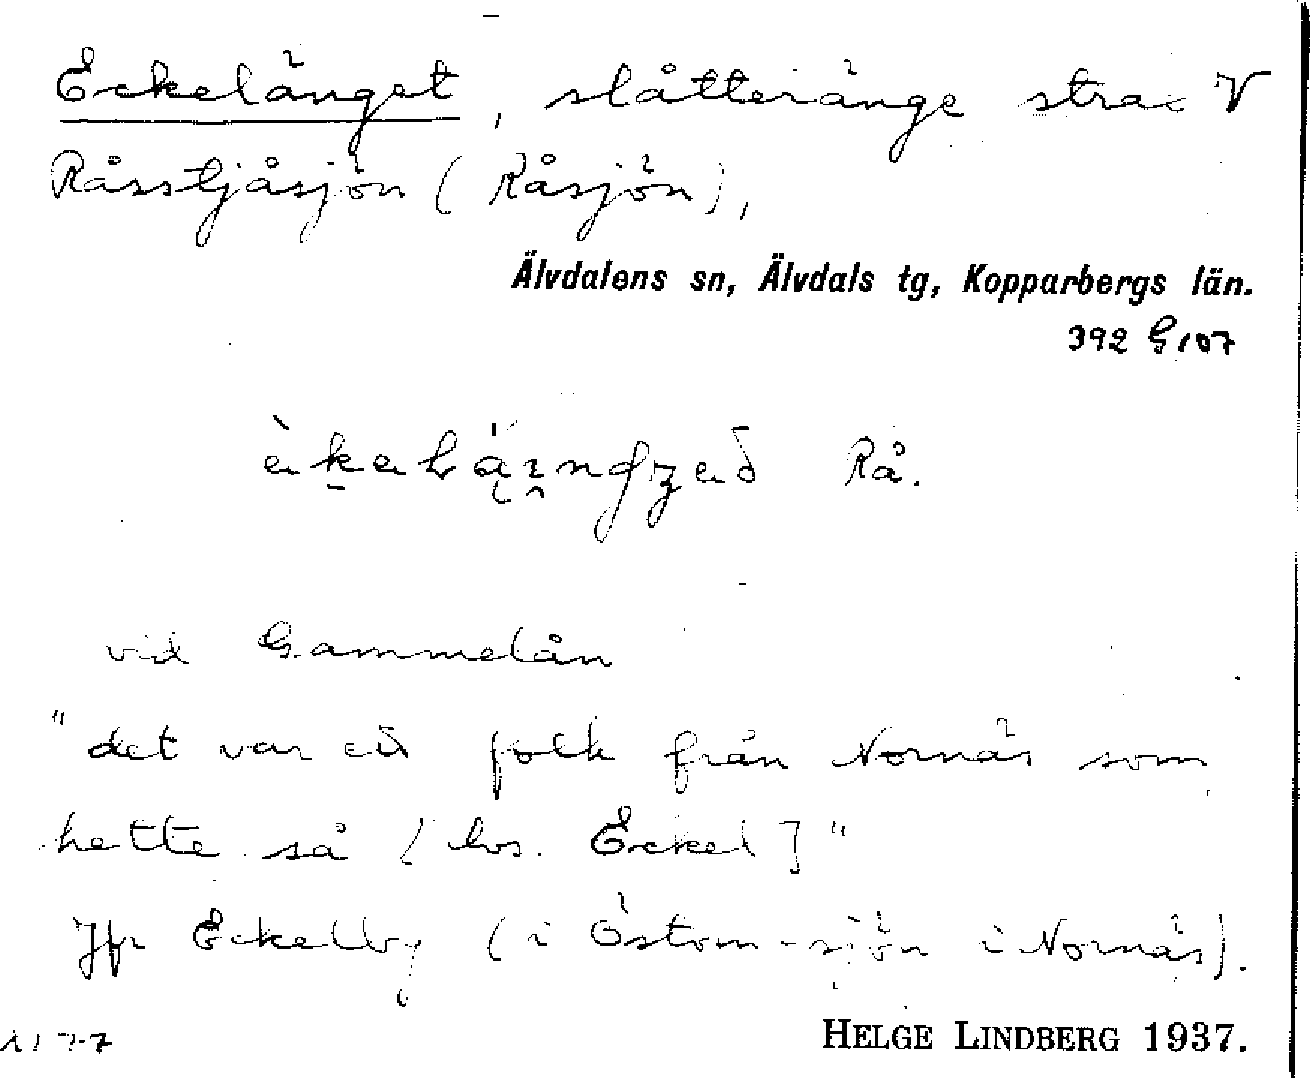 Eckelänget, slåtteränge strax V
Råsstjåsjön (Råsjön),
Älvdalens sn, Älvdals tg, Kopparbergs län.
392 G 107
Rå.
vid Gammelån
"det var ett folk från Nornäs som
hette så [hos. Eckel]"
Jfr Eckelby (i Östom-sjön i Nornäs).
HELGE LINDBERG 1937.